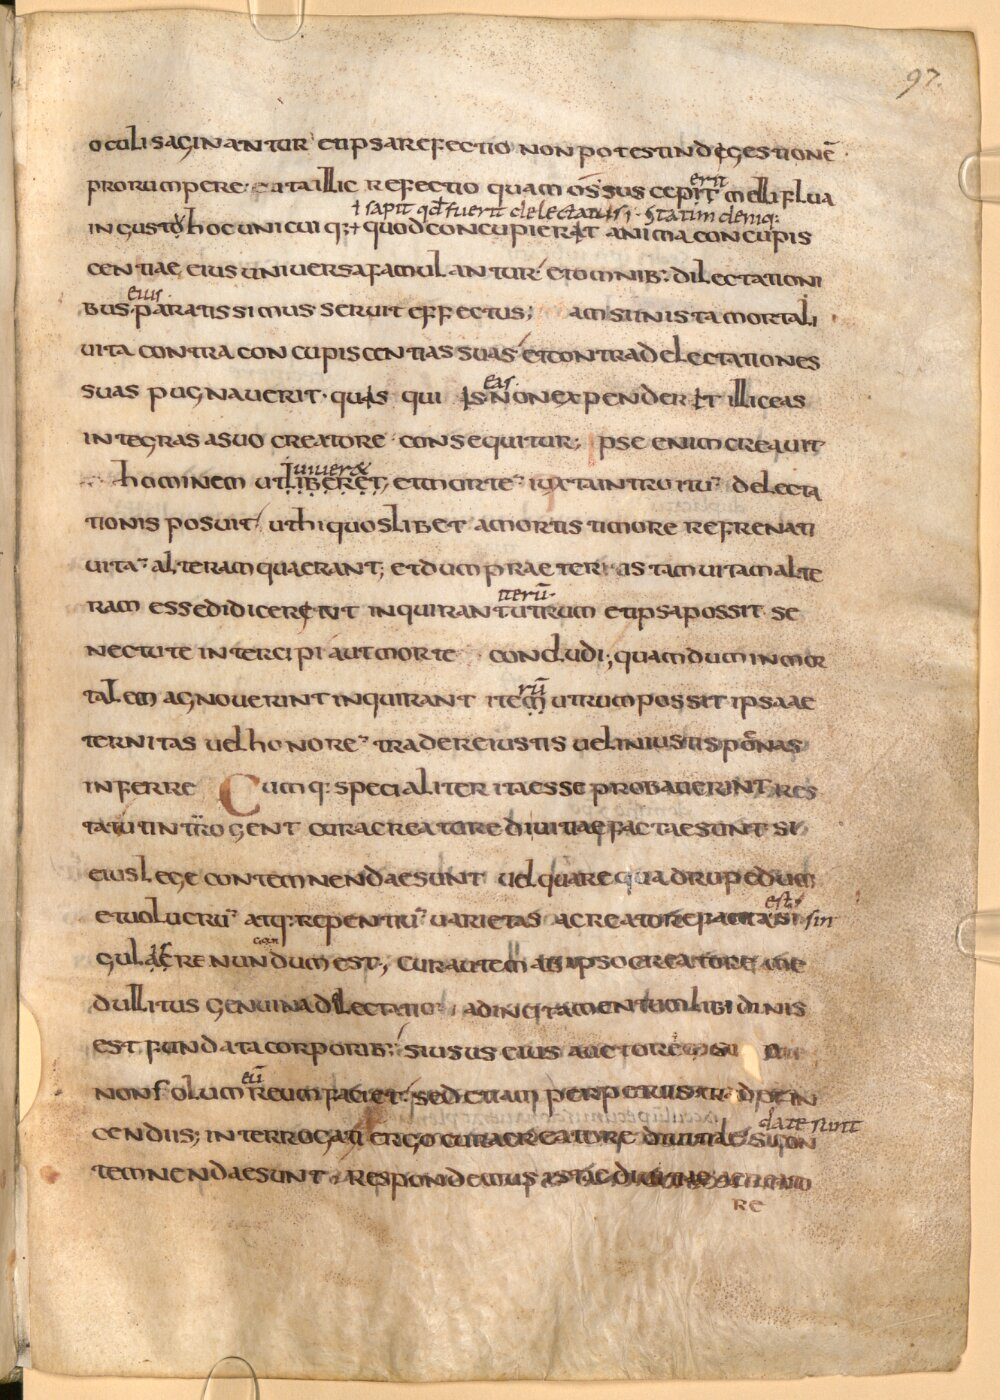 97.
oculisaginantur etipsarefectio nonpotestindigestionē
prorumpere· etaillic refectio quam ossus cepit melliflua
erit
ł sapit qđ fuerit delectatus; · Statim deniq:
ingusto hocunicuiq:+ quodconcupierat animaconcupis
centiae eius universafamulantur etomnib: dilectationi
eius
bus·paratissimus servit effectus; amsiinistamortali
vita contra concupiscentias suas etcontradelectationes
eas
suas pugnaverit· quis qui is·nonexpenderit illiceas
integras asuo creatore consequitur; ipse enimcreavit
viveret
hominem utliberet; etmorte iuxtaintroitu delecta
tionis posuit uthiquoslibet amortis timore refrenati
vita alteramquaerant; etdumpraeter istamvitamalte
iterū·
ram essedidicerint inquirant utrum etipsapossit se
nectute intercipi autmorte concludi; quamdiuminmor
rū
talem agnoverint inquirant item utrumpossit ipsaae
ternitas velhonore tradereiustis veliniustispoenas
inferre Cumq: specialiter itaesse probaverint res
tatutintrogent curacreatoredivitiaefactaesunt si
eiuslege contemnendaesunt vel quare quadrupedum
est
etvolucrū atq:repentiū varietas acreatorefacta si sin
gulaerenundumest; curautem abipsocreatore me
dullitus genuinadilectatio adincitamentumlibidinis
est fundatacorporib: siusus eius auctorem
eū
nonsolum reumfaciet sedetiam perpetuis in
date sunt
cendiis; interrogati ergocuracreatore divitiae sicon
temnendaesunt respondemus
re